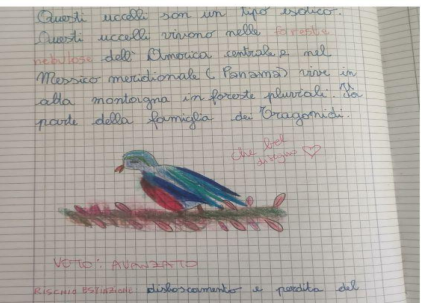 Questi uccelli son un tipo esotico.
Questi uccelli vivono nelle foreste
nebulose dell'America centrale e nel
Messico meridionale (Panama) vive in
alta montagna in foreste pluviali. Fa
parte della famiglia dei Tragonidi.
che bel
disegno ♡
VOTO: AVANZATO
RISCHIO ESTINZIONE disboscamento e perdita del